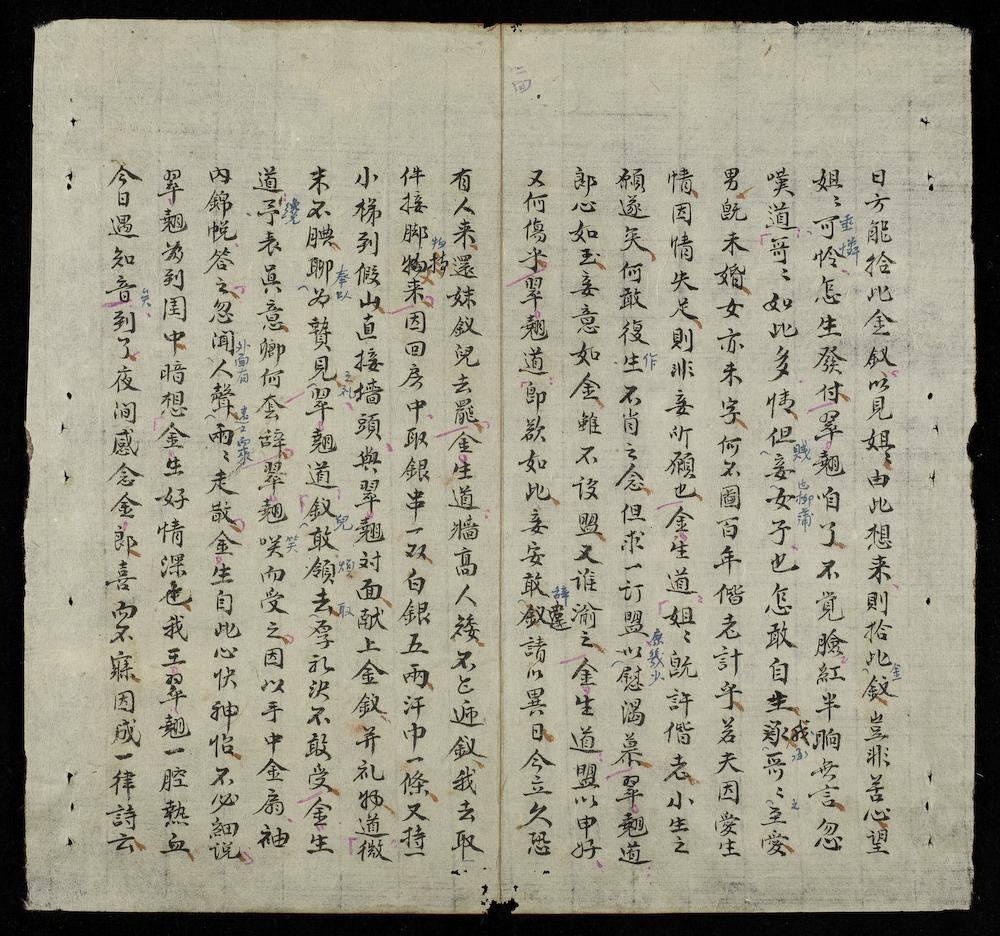 二回
日方能拾此金釵以見姐〻由此想来則拾此釵豈非苦心望
金
姐〻可怜怎生發付翠翹咱了不覚臉紅半晌無言忽
垂憐
嘆道哥〻如此多情但妾女子也怎敢自生承哥〻至愛
賤
也柳蒲
之
男既未婚女亦未字何不圖百年偕老計乎若夫因愛生
情因情失足則非妾所願也金生道姐〻既許偕老小生之
願遂矣何敢復生不肖之念但求一訂盟以慰渴慕翠翹道
作
庶幾少
郎心如玉妾意如金雖不設盟又誰渝之金生道盟以申好
又何傷乎翠翹道郎欲如此妾安敢辭請以異日今立久恐
辞
有人来還妹釵兒去罷金生道墙高人矮不已逓釵我去取
件接脚物来因回房中取銀串一双白銀五兩汗巾一條又持一
物
小梯到假山直接墻頭與翠翹対面献上金釵并礼物道微
末不腆聊為贄見翠翹道釵敢領去厚礼決不敢受金生
奉以
之礼
兒
取
道予表真意卿何套辞翠翹咲而受之因以手中金扇袖
笑
内錦帨答之忽聞人聲兩〻走散金生自此心快神怡不必細説
外面有
翠翹為到閨中暗想金生好情深也我王翠翹一腔熱血
今日遇知音到了夜间感念金郎喜而不寐因成一律詩云
矣